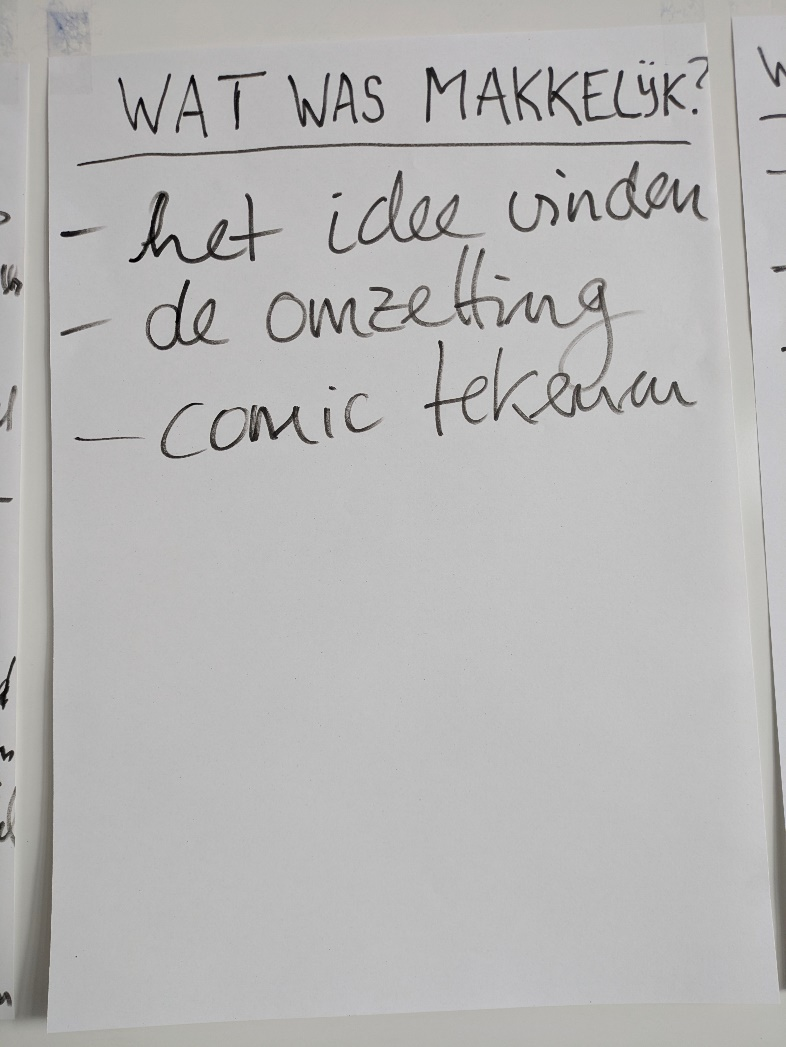 WAT WAS MAKKELIJK?
- het idee vinden
- de omzetting
- comic tekenen